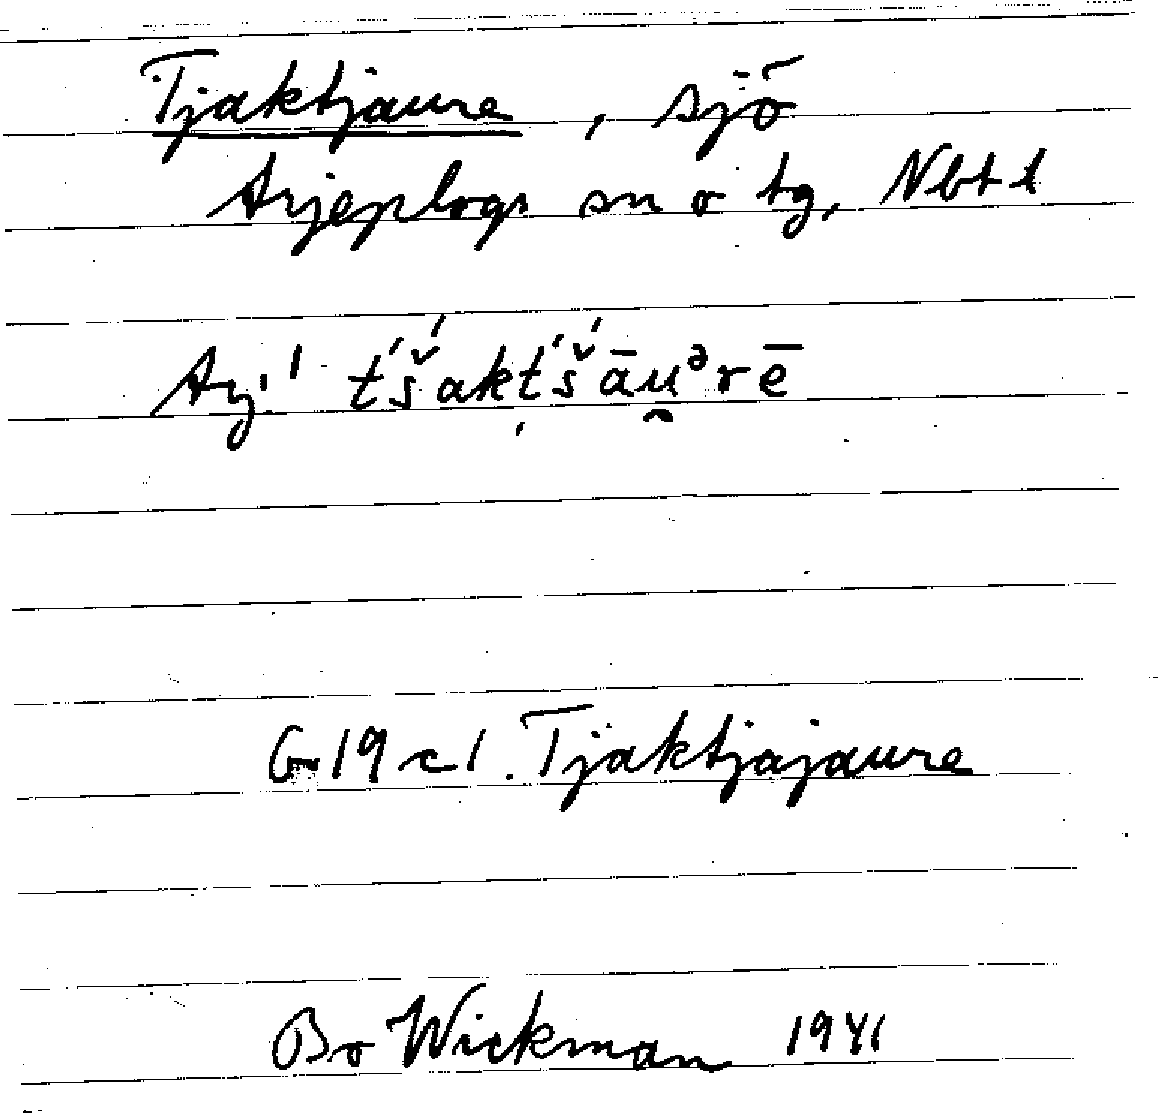 Tjaktjaure, sjö
Arjeplogs sn o tg, Nbt l
Arj.' t́š́akt́š́āu̯ᵊrē
G 19 c 1. Tjaktjajaure
Bo Wickman 1941